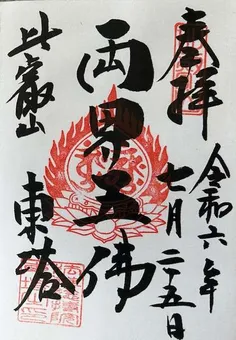 奉拝
令和六年
七月二五日
両界五佛
比叡山
東塔